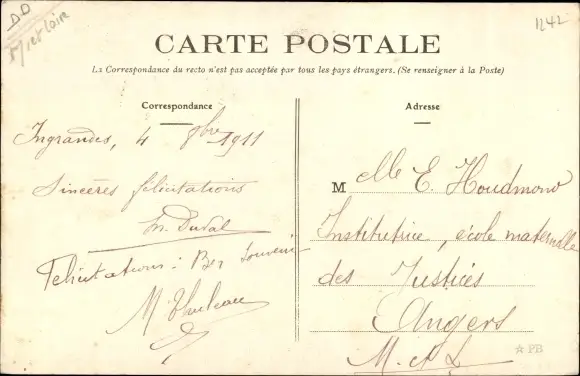 DD
1242
CARTE POSTALE
La Correspondance du recto n'est pas acceptée par tous les pays étrangers. (Se renseigner à la Poste)
Correspondance
Ingrandes, 4 9bre 1911
Sincères félicitations
M. Duval
Félicitations : Bon Souvenir
Adresse
M elle E. Houdmond
Institutrice, école maternelle
des Justices
Angers
M. & L.
☆ PB